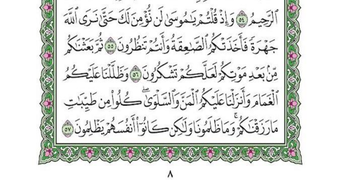 ٱلرَّحِيمُ ٥٤ وَإِذْ قُلْتُمْ يَٰمُوسَىٰ لَن نُّؤْمِنَ لَكَ حَتَّىٰ نَرَى ٱللَّهَ
جَهْرَةً فَأَخَذَتْكُمُ ٱلصَّٰعِقَةُ وَأَنتُمْ تَنظُرُونَ ٥٥ ثُمَّ بَعَثْنَٰكُم
مِّنۢ بَعْدِ مَوْتِكُمْ لَعَلَّكُمْ تَشْكُرُونَ ٥٦ وَظَلَّلْنَا عَلَيْكُمُ
ٱلْغَمَامَ وَأَنزَلْنَا عَلَيْكُمُ ٱلْمَنَّ وَٱلسَّلْوَىٰ كُلُوا۟ مِن طَيِّبَٰتِ
مَا رَزَقْنَٰكُمْ وَمَا ظَلَمُونَا وَلَٰكِن كَانُوٓا۟ أَنفُسَهُمْ يَظْلِمُونَ ٥٧
٨